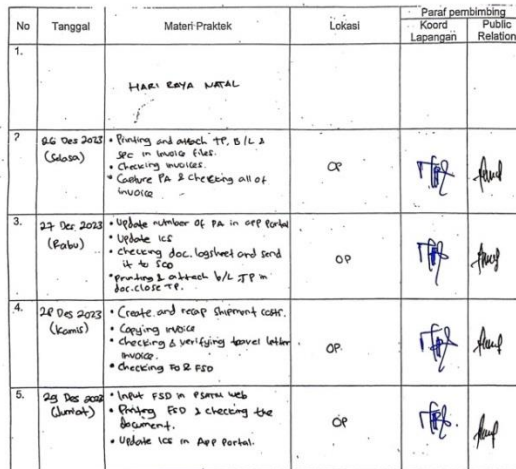 No Tanggal Materi Praktek Lokasi Paraf pembimbing
Koord Lapangan Public Relation
1.
HARI RAYA NATAL
2 26 Des 2023 • Printing and attach TP, B/L &
(Selasa) SEC in invoice files.
• Checking invoices. OP
• Capture PA & Checking all of
invoice
3. 27 Des 2023 • Update number of PA in app Portal
(Rabu) • Update ICS
• Checking doc. logsheet and send OP
it to SCO
• Printing & attach b/L TP in
doc.close TP.
4. 28 Des 2023 • Create and recap Shipment costs.
(Kamis) • Copying invoice
• Checking & verifying travel letter OP.
invoice.
• Checking FO & FSO
5. 29 Des 2023 • Input FSD in web
(Jumat) • Printing FSD & checking the OP
document.
• Update ICS in App Portal.